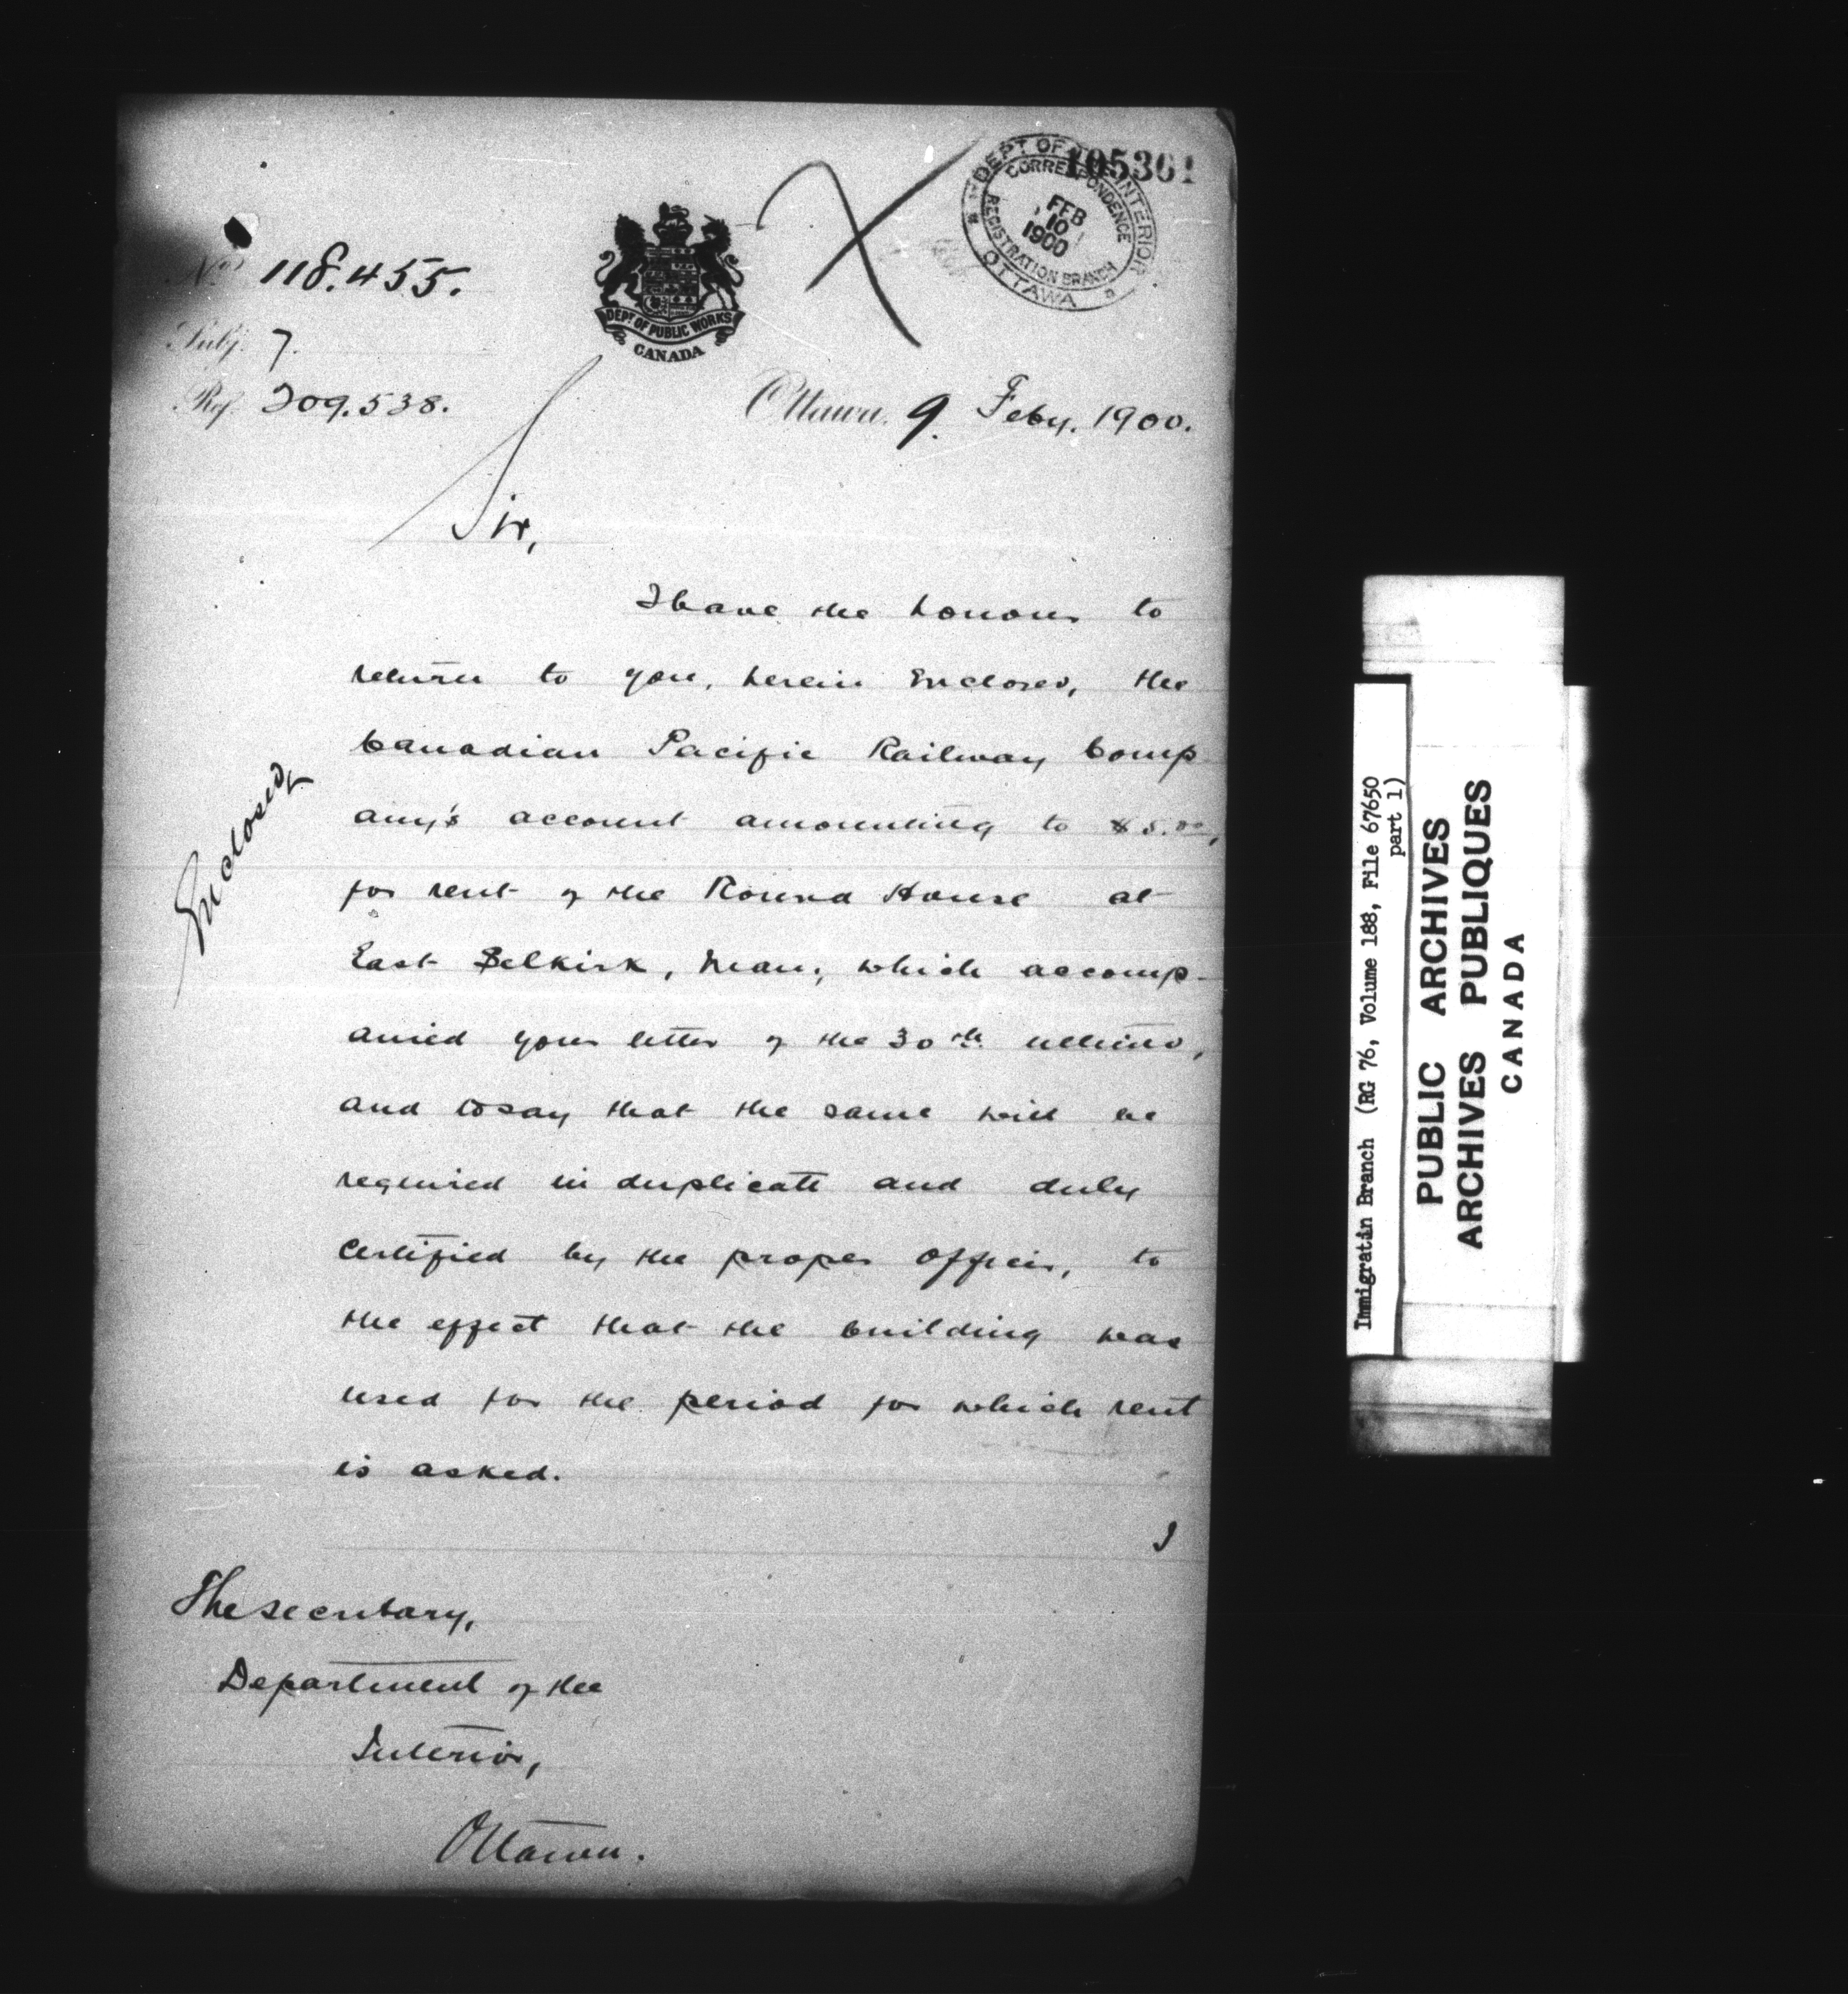 105361
DEPT OF THE INTERIOR
CORRESPONDENCE
FEB
10
1900
REGISTRATION BRANCH
OTTAWA
No. 118.455.
Subj. 7.
Ref. 209.538.
DEPT. OF PUBLIC WORKS
CANADA
Ottawa, 9. Feby. 1900.
Sir,
I have the honour to
return to you, herein Enclosed, the
Canadian Pacific Railway Comp
any's account amounting to $5.00,
for rent of the Round House at
East Selkirk, Man., which accomp-
anied your letter of the 30th ultimo,
and to say that the same will be
required in duplicate and duly
certified by the proper officer, to
the effect that the building was
used for the period for which rent
is asked.
I
Enclosed
The Secretary,
Department of the
Interior,
Ottawa.
Immigratin Branch (RG 76, Volume 188, File 67650
part 1)
PUBLIC ARCHIVES
ARCHIVES PUBLIQUES
CANADA